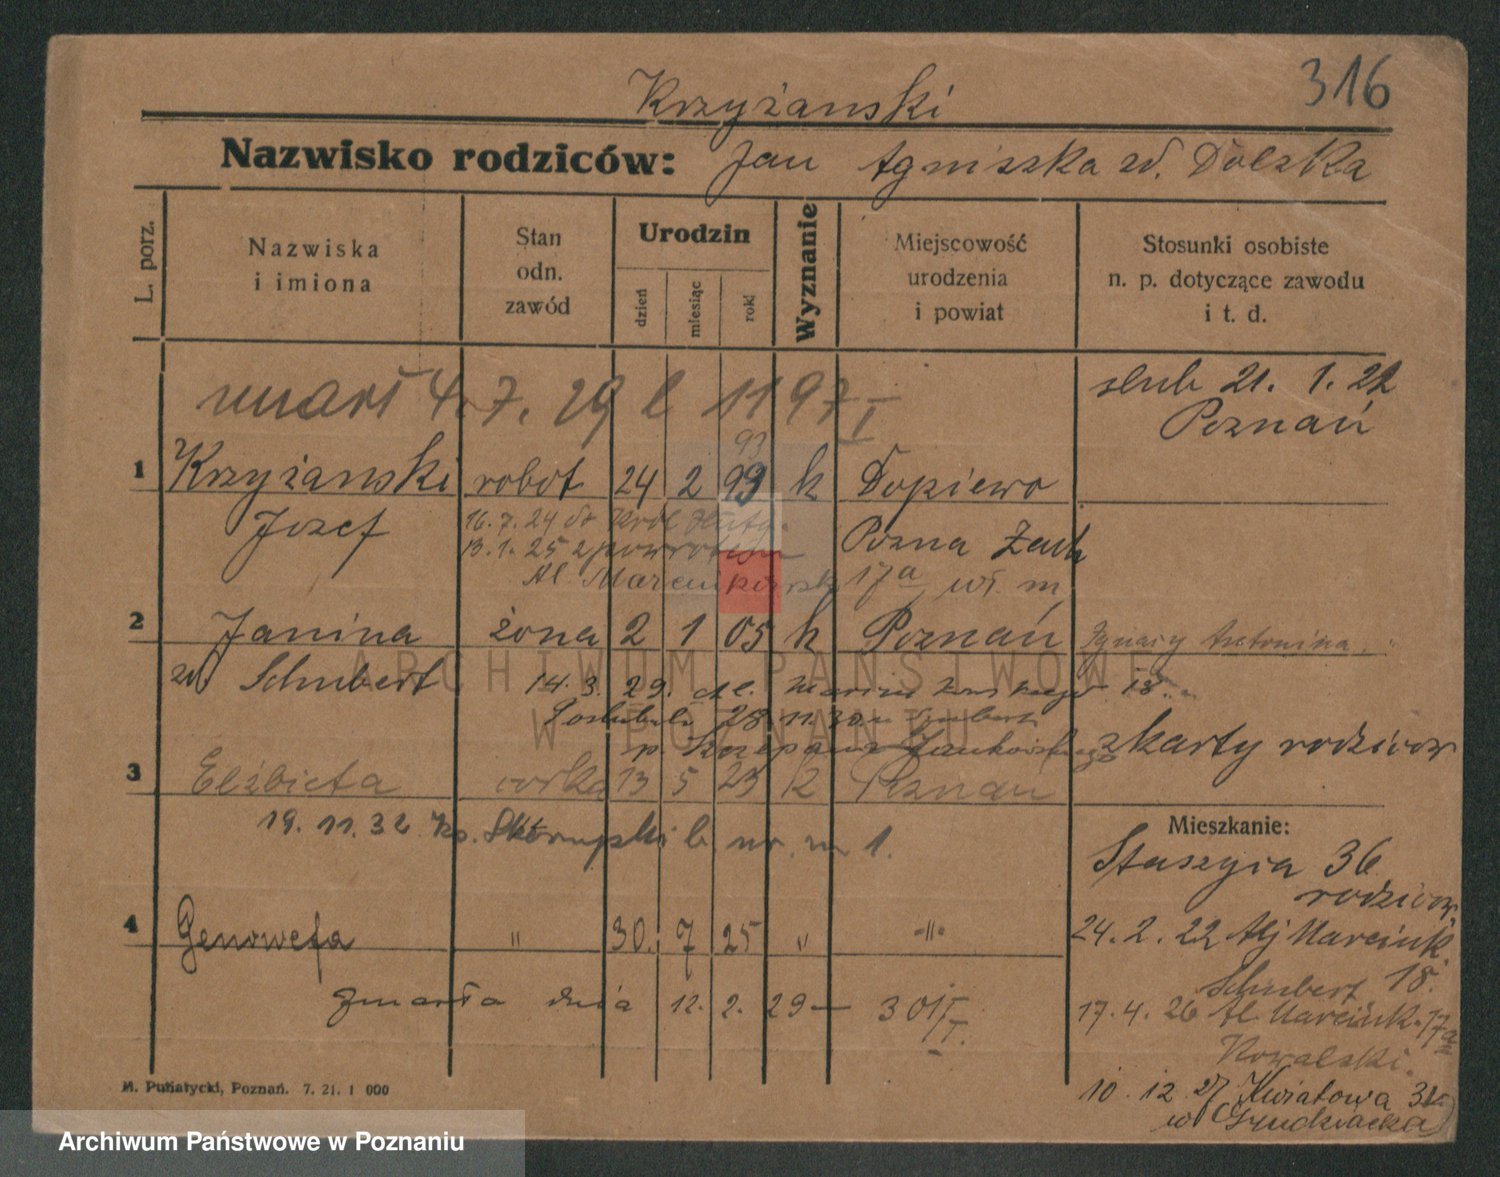 316
Krzyżanski
Nazwisko rodziców: Jan Agniszka zd. Dolszka
L. porz.
Nazwiska i imiona
Stan odn. zawód
Urodzin
dzień miesiąc rok
Wyznanie
Miejscowość urodzenia i powiat
Stosunki osobiste n. p. dotyczące zawodu i t. d.
umarł 4. 7. 29 l 1197 I
ślub 21. 1. 22
Poznań
93
1 Krzyżanski robot 24 2 99 k Dopiewo
Jozef
16. 7. 24 do Król Huta
Pozna Zach
13. 1. 25 z powrotem
Al Marcinkowsk 17a wł. m
2 Janina żona 2 1 05 k Poznań Ignacy Antonina
zd Schubert
14. 3. 29. Al. Marcinkowskiego 18
28 11 30 u Schubert
p. Szczepana Jankowskiego
z karty rodziców
3 Elżbieta córka 13 5 23 k Poznań
19. 11. 32 Ks. Skorupki 6 nr. m 1.
Mieszkanie:
Staszyca 36
rodziców
4 Genowefa " 30. 7 25 " -"-
24. 2. 22 Alj Marcink. 18.
Schubert
zmarła dnia 12. 2. 29 — 301/I.
17. 4. 26 Al. Marcink. 17a
Kowalski.
10. 12 27 Kwiatowa 3
w Grudziacka
M. Putiatycki, Poznań. 7. 21. 1 000
ARCHIWUM PAŃSTWOWE
W POZNANIU
Archiwum Państwowe w Poznaniu